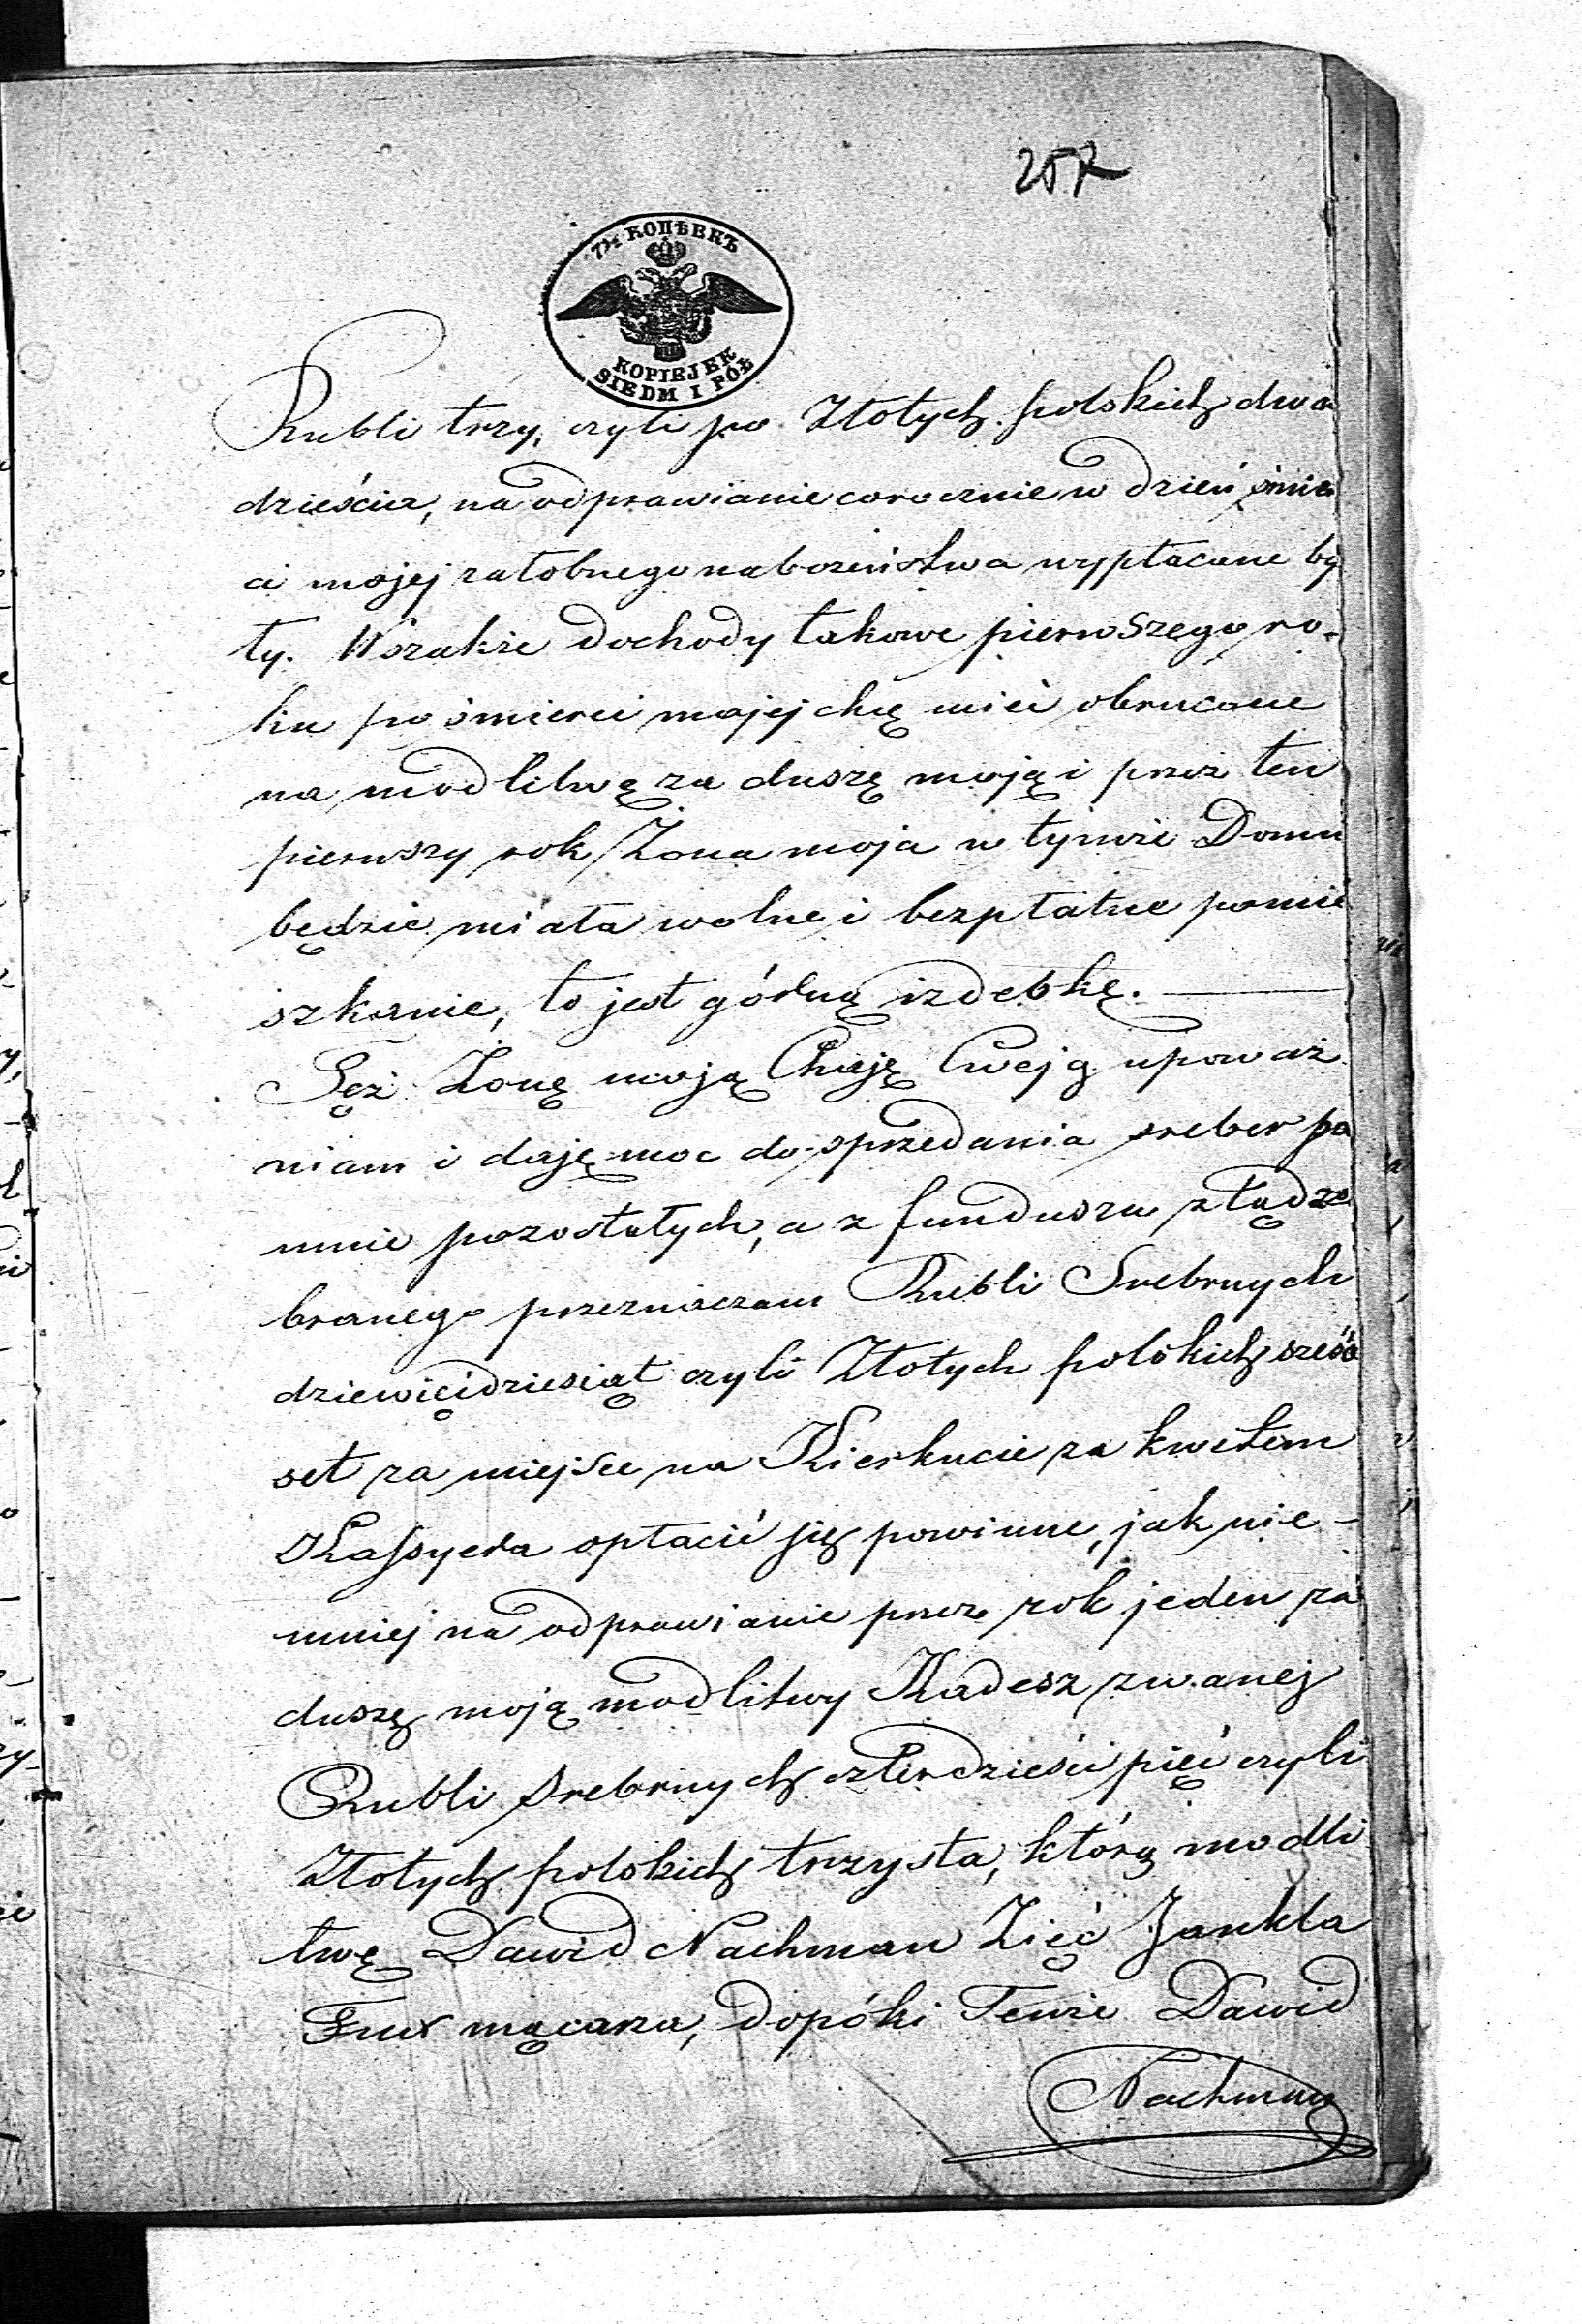 257
7½ КОПѢЕКЪ
KOPIEJEK
SIEDM I PÓŁ
Rubli trzy, czyli po Złotych polskich dwa
dzieścia, na odprawianie corocznie w dzień śmier
ci mojej żałobnego nabożeństwa wypłacane by
ły. Wszakże dochody takowe pierwszego ro-
ku po śmierci mojej chcę mieć obrucone
na modlitwę za duszę moją i przez ten
pierwszy rok Żona moja w tymże Domu
będzie miała wolne i bezpłatne pomie
szkanie, to jest górną izdebkę.
Tęż Żonę moją Chaję Cwejg upoważ
niam i daję moc do sprzedania sreber po
mnie pozostałych, a z funduszu ztąd ze
branego przeznaczam Rubli Srebrnych
dziewięćdziesiąt czyli Złotych polskich sześć
set za miejsce na Kierkucie za kwitem
Kassyera opłacić się powinne, jak nie-
mniej na odprawianie przez rok jeden za
duszę moją modlitwy Kadesz zwanej
Rubli Srebrnych czterdzieści pięć czyli
Złotych polskich trzysta, którą modli
twę Dawid Nachman Zięć Jankla
Fux mącarza, dopóki Tenże Dawid
Nachman